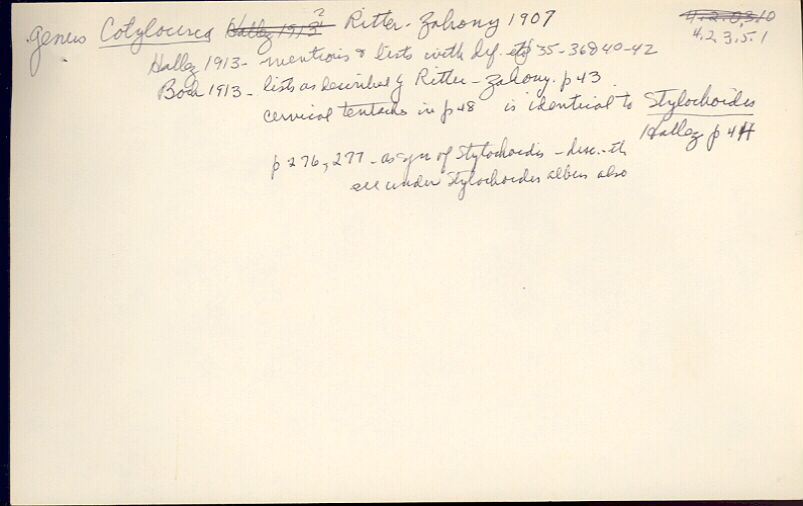 genus Cotylocera Hallez 1913 2 Ritter-Zahony 1907
4.2.3.5.1
Hallez 1913- mentions & lists with def. etc p 35-36 & 40-42
Bock 1913- lists as described by Ritter-Zahony. p 43
cervical tentacles in p 48 is identical to Stylochoides
Hallez p 44
p 276, 277 - as syn of Stylochoides - disc.
see under Stylochoides albus also